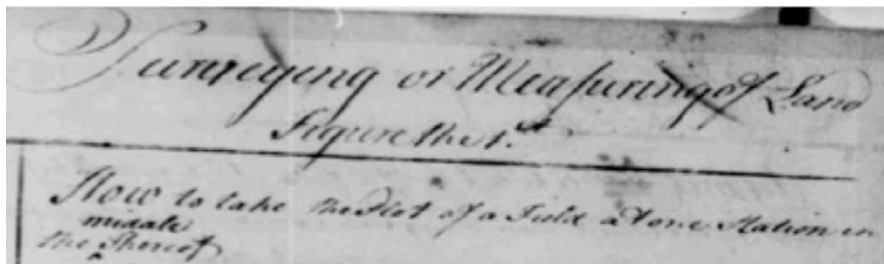 Surveying or Measuring of Land
Figure the 1.st
How to take the Plot of a Field at one Station in
midale
the Thereof